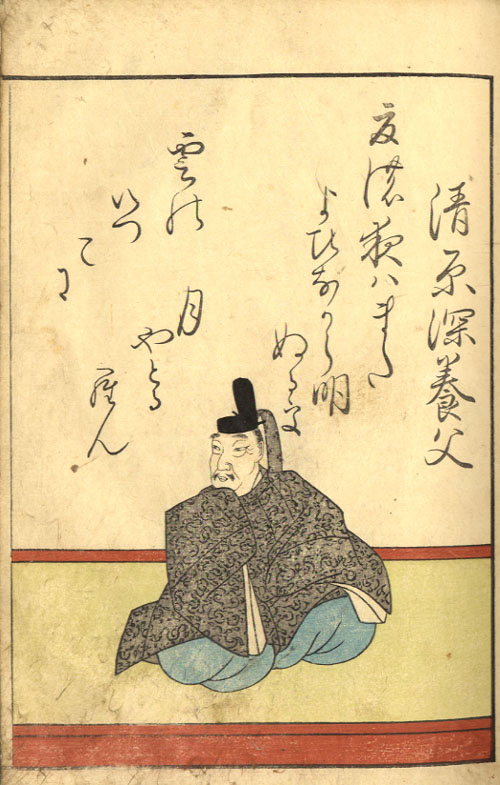 清原深養父
夏の夜はまた
よひなから明
ぬるを
雲の
いつ
こ
に
月
やとる
らん